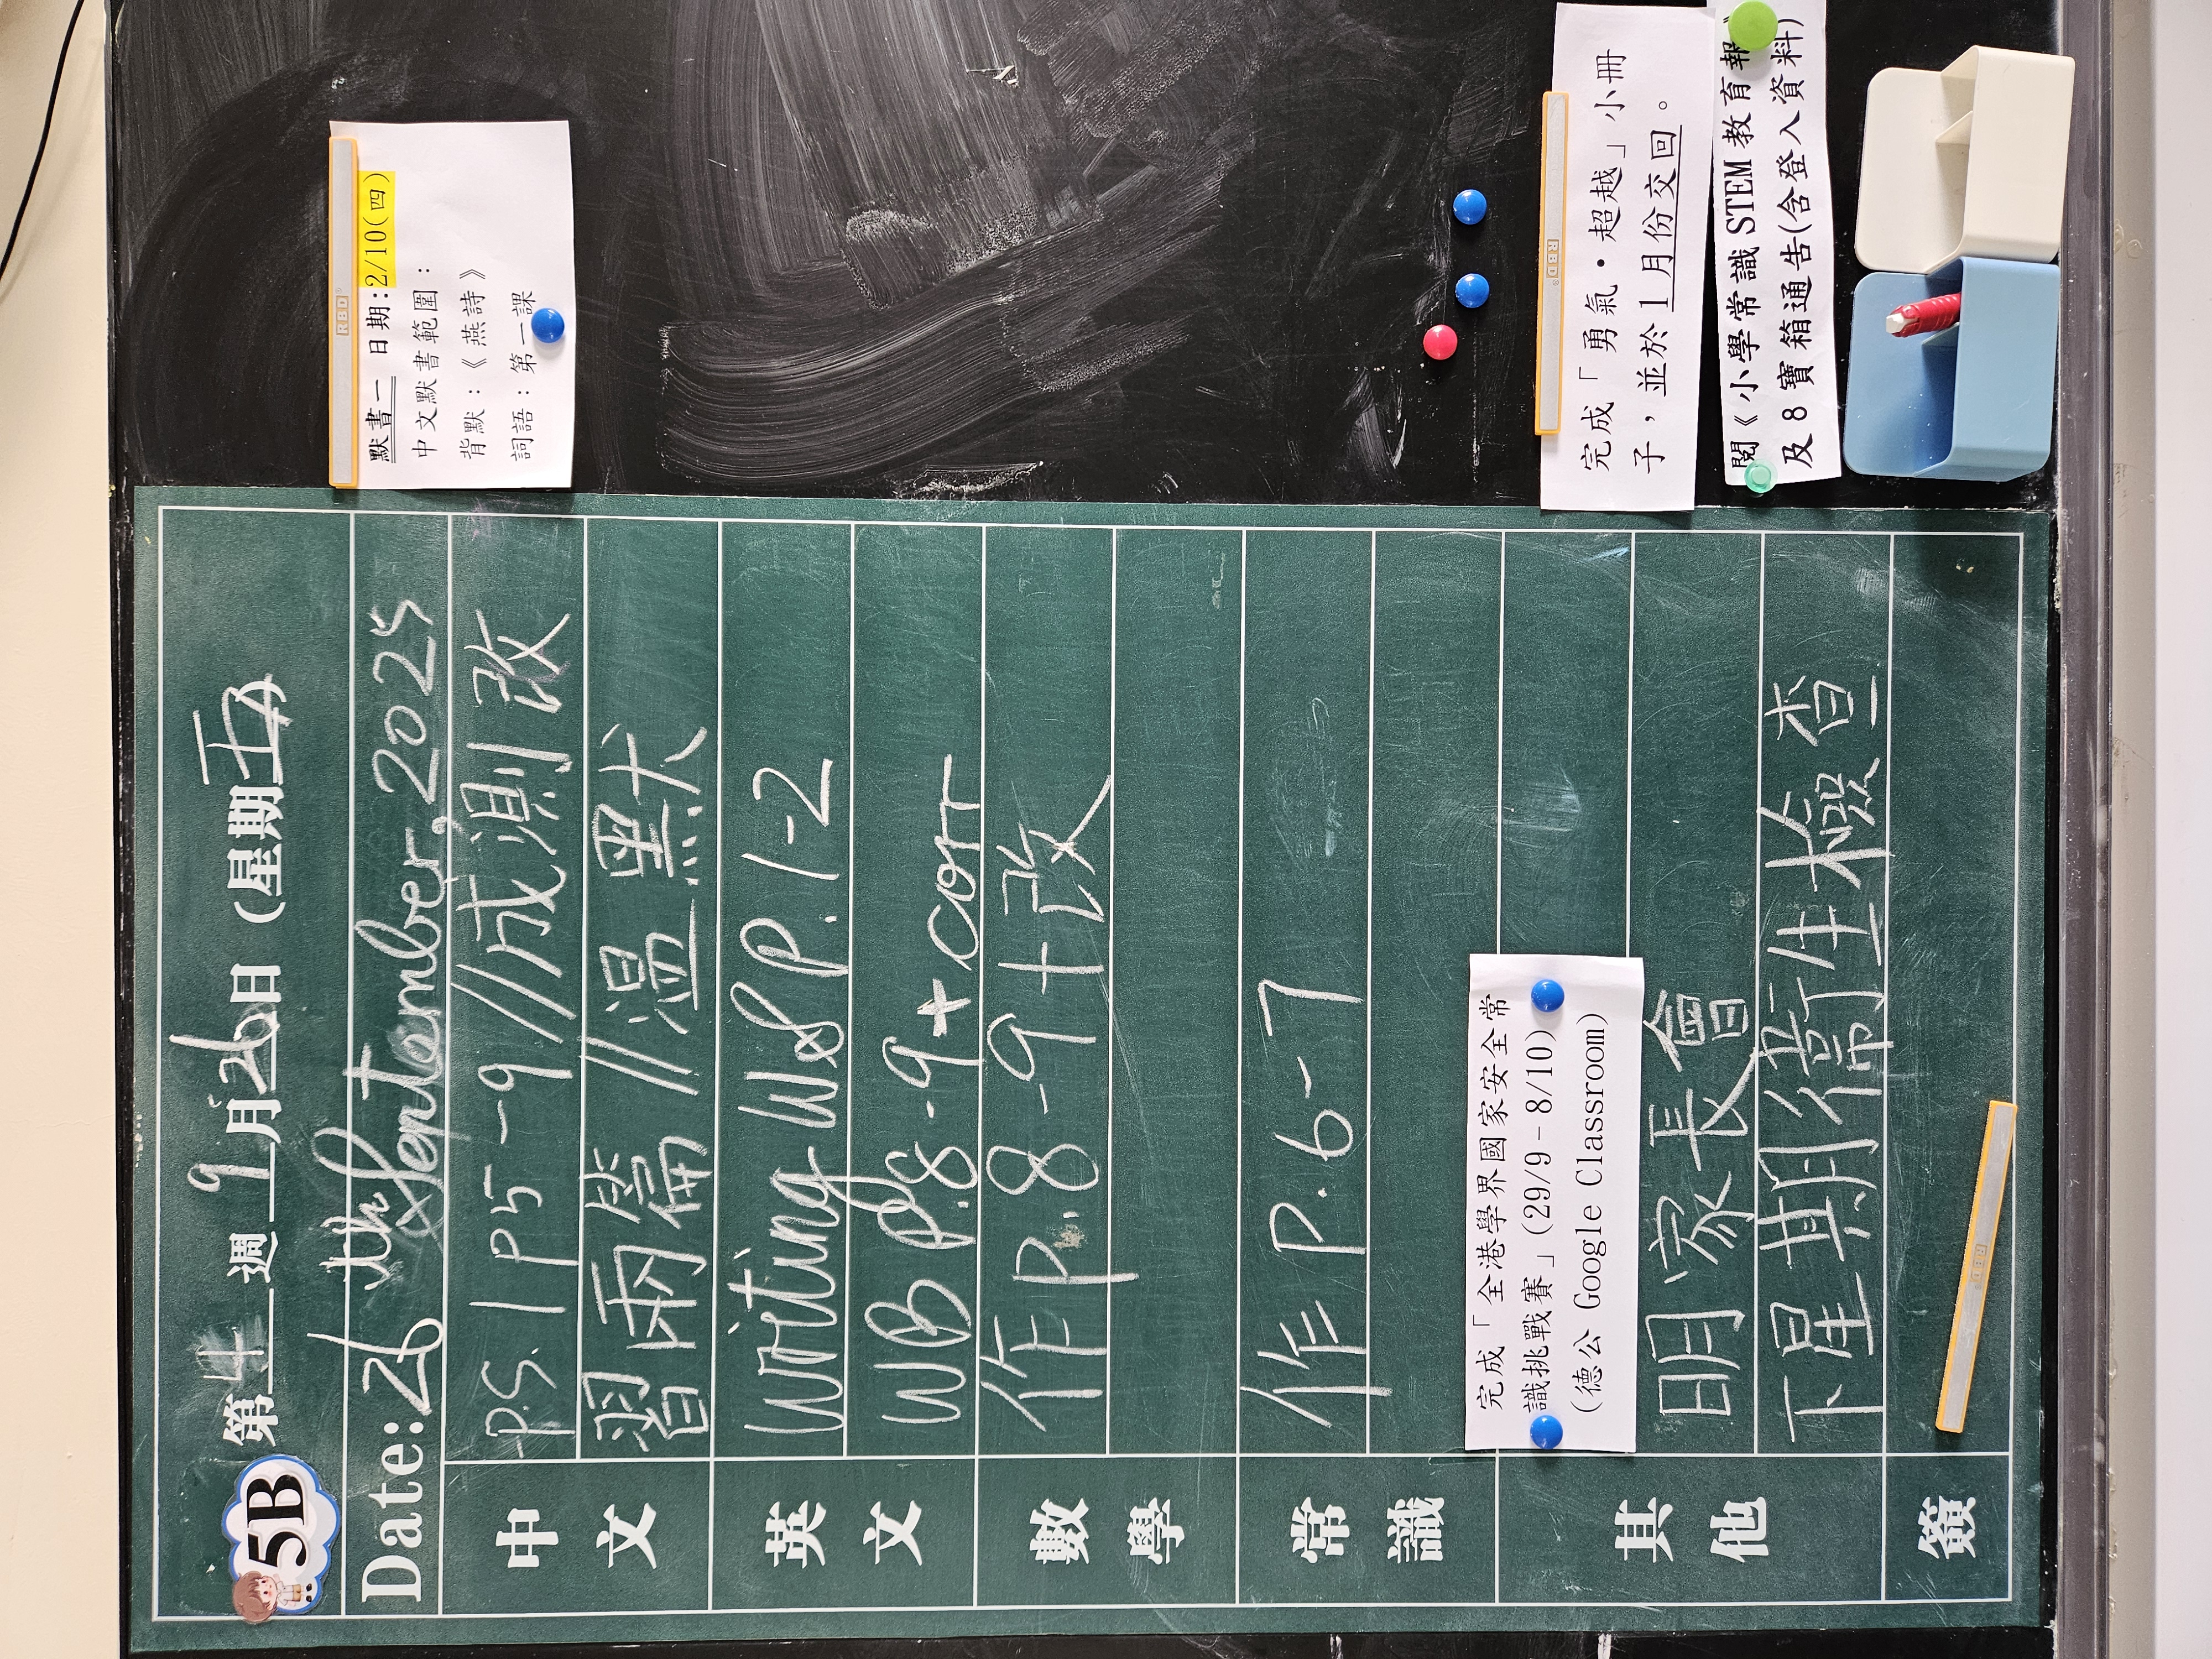 5B 第 4 週 9 月 26 日 (星期五)
Date: 26th September, 2025
中文
P.S. 1 P5-9 // 成測改
習兩篇 // 溫默
英文
Writing WS P. 1-2
WB P.8-9 + corr
數學
作P.8-9+改
常識
作P.6-7
其他
完成「全港學界國家安全常
識挑戰賽」(29/9-8/10)
(德公 Google Classroom)
明家長會
下星期衛生檢查
簽
RBD
RBD
默書一 日期:2/10(四)
中文默書範圍:
背默:《燕詩》
詞語:第一課
RBD
完成「勇氣・超越」小冊
子,並於1月份交回。
閱《小學常識 STEM 教育報》
及 8 寶箱通告(含登入資料)